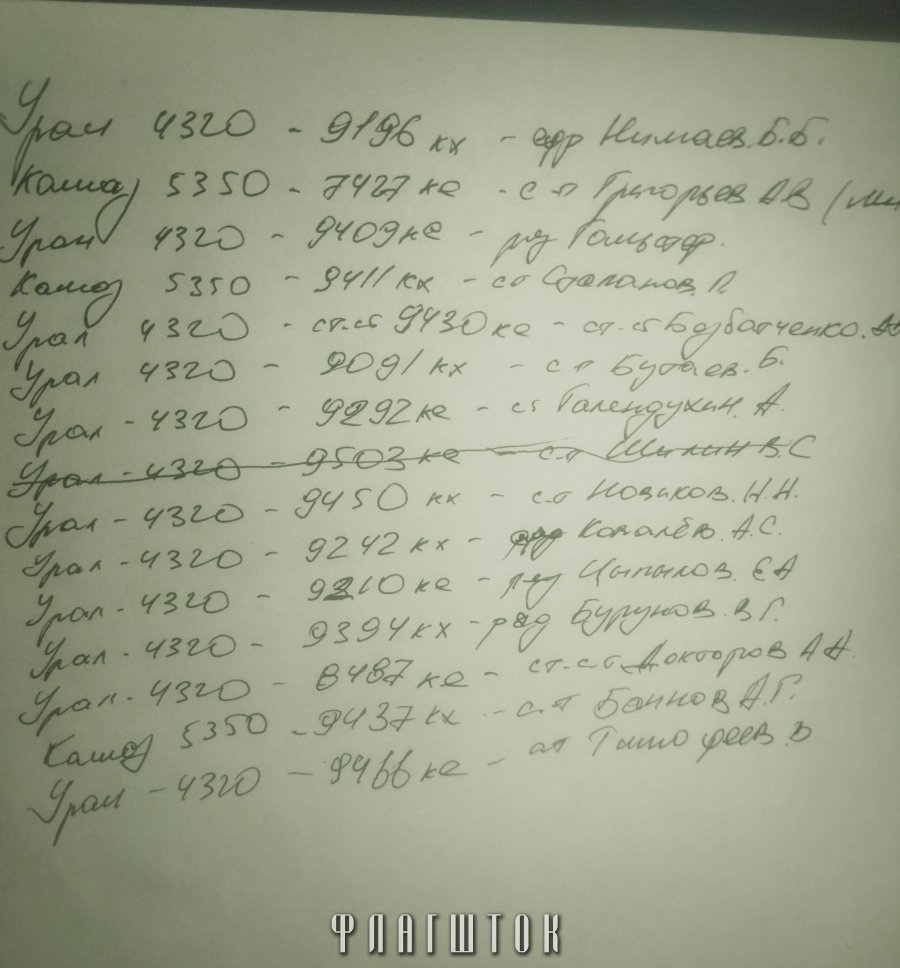 Урал 4320 - 9196 кх - Нимаев. Б.Б.
Камаз 5350 - 7427 ке - с-т Григорьев АВ
Урал 4320 - 9409 ке - ряд
Камаз 5350 - 9411 кх - ст
Урал 4320 - ст.-ст 9430 ке - ст.-ст Безбатченко.
Урал 4320 - 9091 кх - с-т Бутаев. Б.
Урал - 4320 - 9292 ке - ст Галендухин. А
Урал - 4320 - 9503 ке - с-т Шилин В.С
Урал - 4320 - 9450 кх - с-т Новиков. Н.Н.
Урал - 4320 - 9242 кх - А.С.
Урал - 4320 - 9310 ке - ряд Цыпылов. ЕА
Урал - 4320 - 9394 кх - ряд Бурунов. В Г.
Урал - 4320 - 8487 ке - ст.-ст Докторов А А.
Камаз 5350 - 9437 кх - с-т Баннов А.Г.
Урал - 4320 - 9466 ке - Тимофеев. В
ФЛАГШТОК